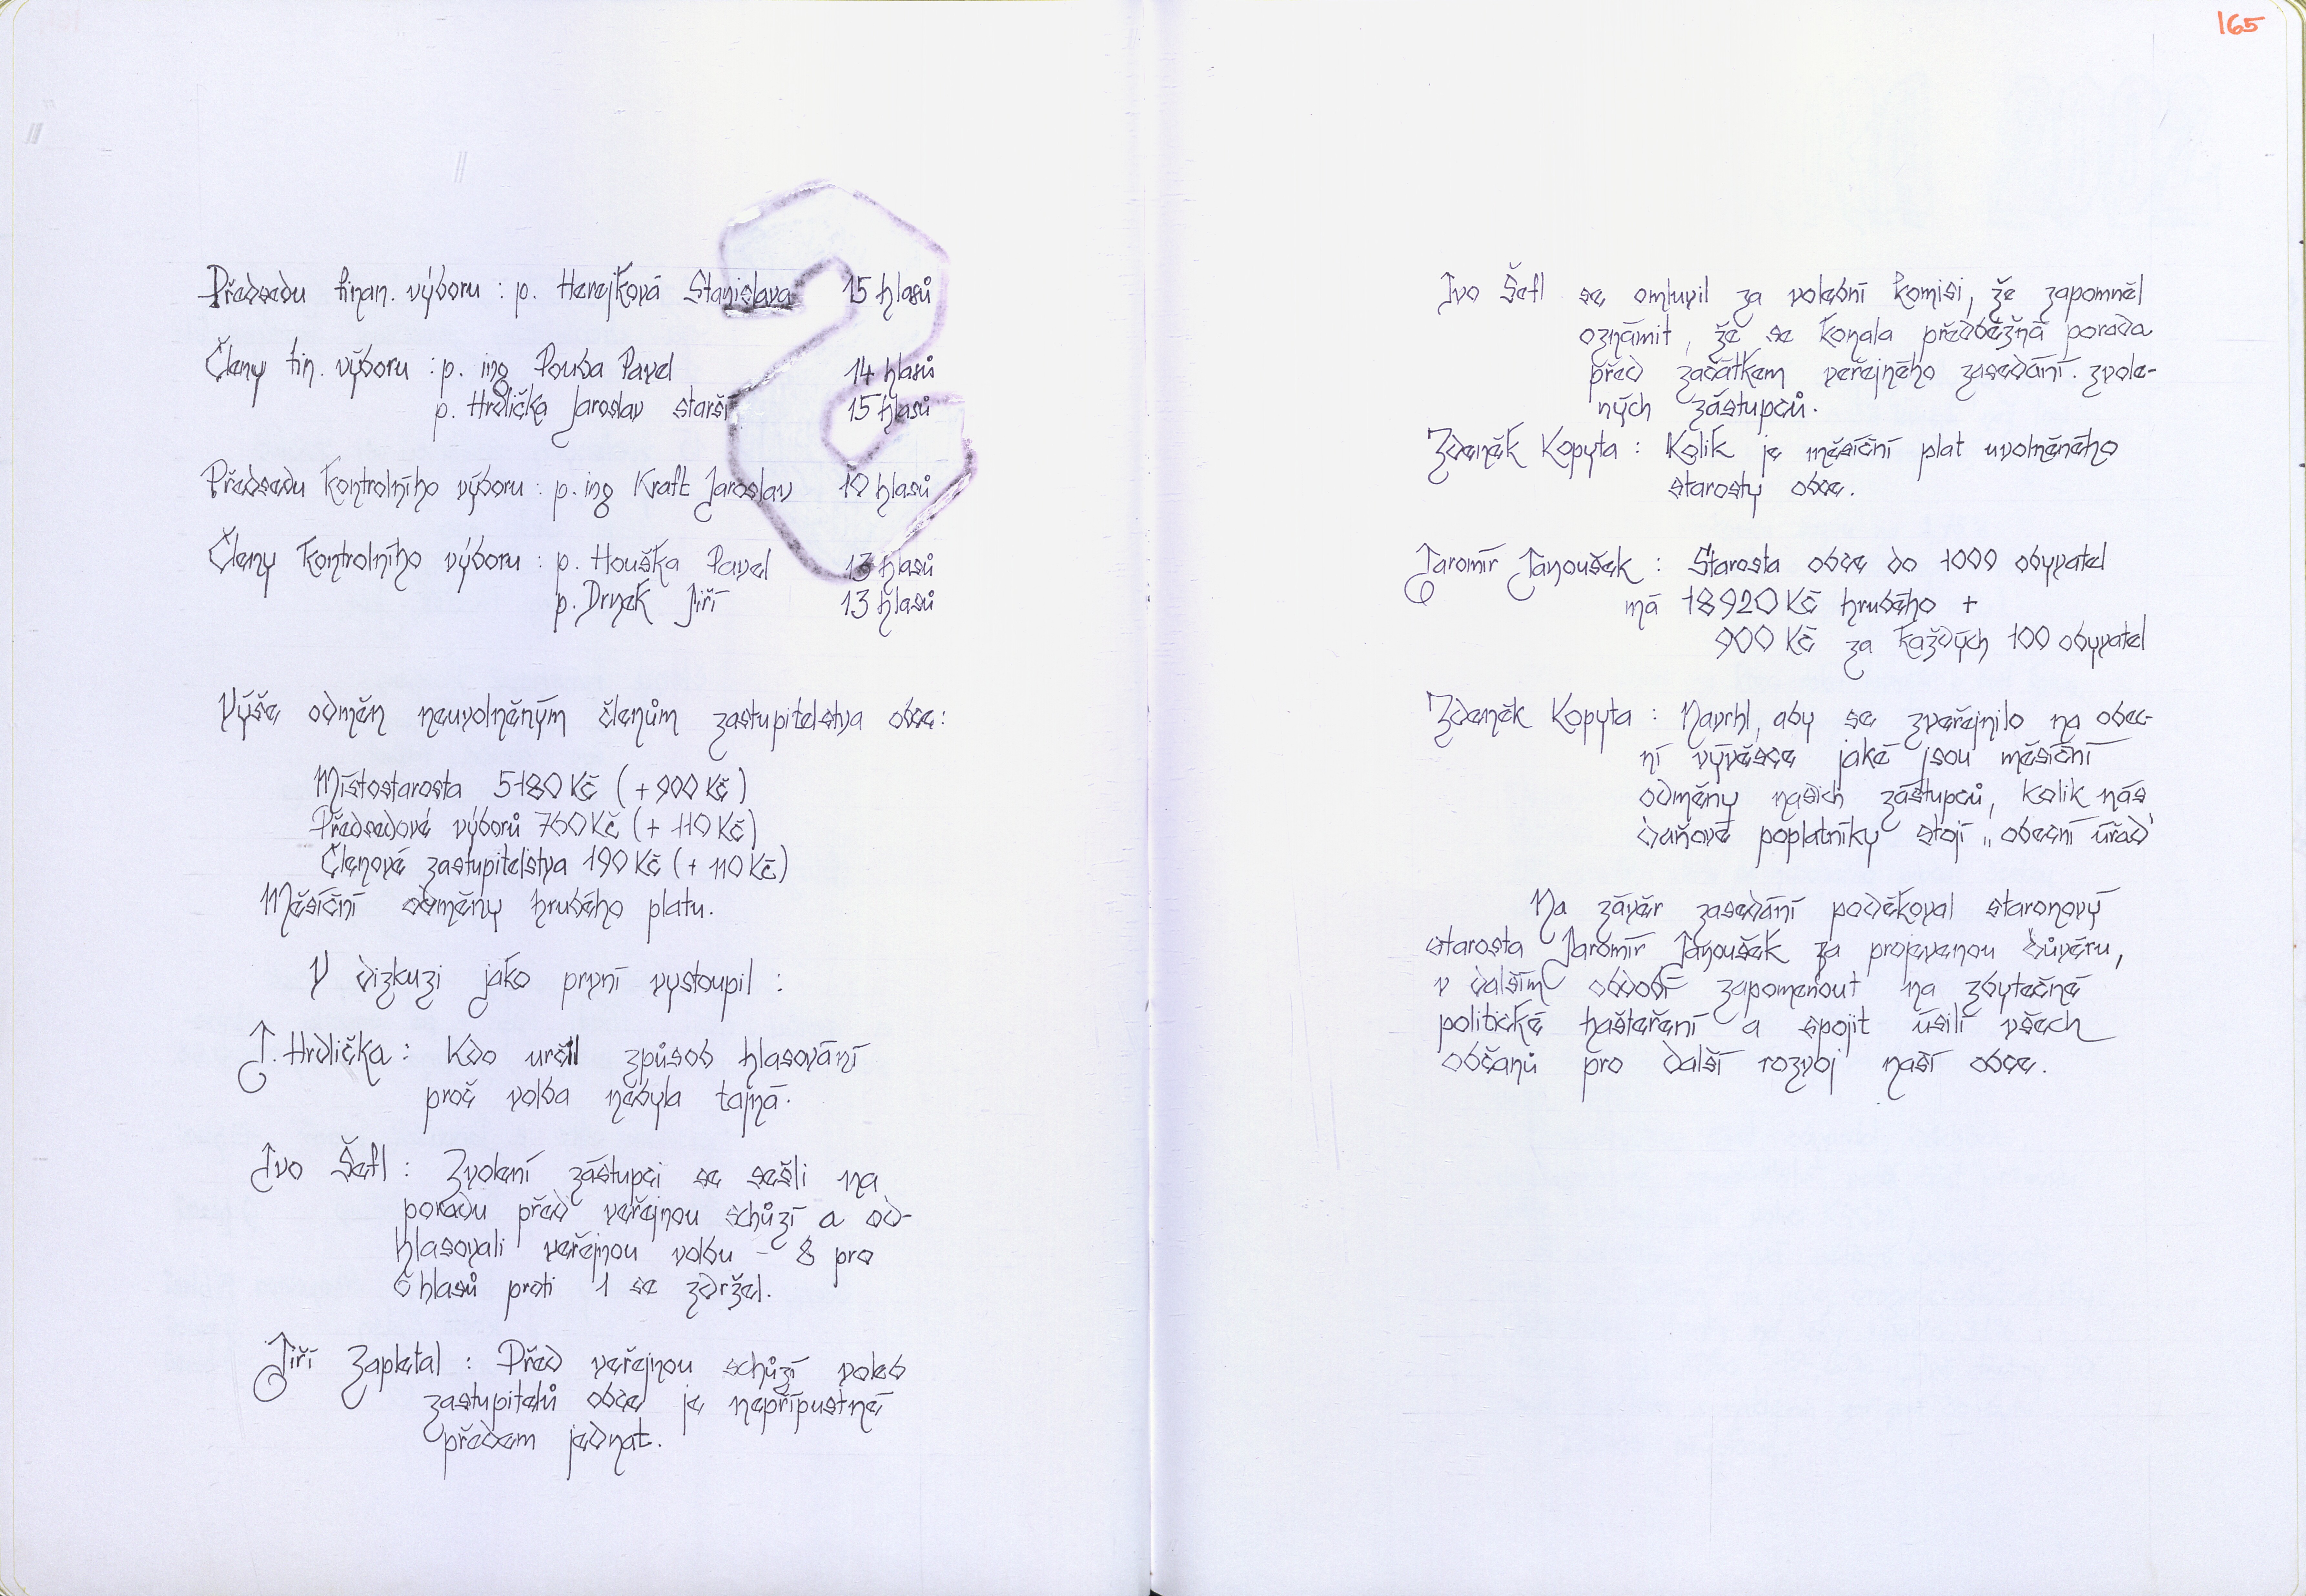 Předsedu finan. výboru : p. Herejková Stanislava 15 hlasů
Členy fin. výboru : p. ing Pouba Pavel 14 hlasů
p. Hrdlička Jaroslav starší 15 hlasů
Předsedu kontrolního výboru : p. ing Kraft Jaroslav 10 hlasů
Členy kontrolního výboru : p. Houška Pavel 13 hlasů
p. Drnek Jiří 13 hlasů
Výše odměn neuvolněným členům zastupitelstva obce:
Místostarosta 5180 Kč (+ 900 Kč)
Předsedové výborů 760 Kč (+ 110 Kč)
Členové zastupitelstva 190 Kč (+ 110 Kč)
Měsíční odměny hrubého platu.
V dizkuzi jako první vystoupil :
J. Hrdlička : Kdo určil způsob hlasování
proč volba nebyla tajná.
Ivo Šefl : Zvolení zástupci se sešli na
poradu před veřejnou schůzí a od-
hlasovali veřejnou volbu - 8 pro
6 hlasů proti 1 se zdržel.
Jiří Zapletal : Před veřejnou schůzí voleb
zastupitelů obce je nepřípustné
předem jednat.
165
Ivo Šefl se omluvil za volební komisi, že zapomněl
oznámit, že se konala předběžná porada
před začátkem veřejného zasedání. zvole-
ných zástupců.
Zdeněk Kopyta : Kolik je měsíční plat uvolněného
starosty obce.
Jaromír Janoušek : Starosta obce do 1000 obyvatel
má 18920 Kč hrubého +
900 Kč za každých 100 obyvatel
Zdeněk Kopyta : Navrhl, aby se zveřejnilo na obec-
ní vývěsce jaké jsou měsíční
odměny našich zástupců, kolik nás
daňové poplatníky stojí „obecní úřad"
Na závěr zasedání poděkoval staronový
starosta Jaromír Janoušek za projevenou důvěru,
v dalším období zapomenout na zbytečné
politické hašteření a spojit úsilí všech
občanů pro další rozvoj naší obce.